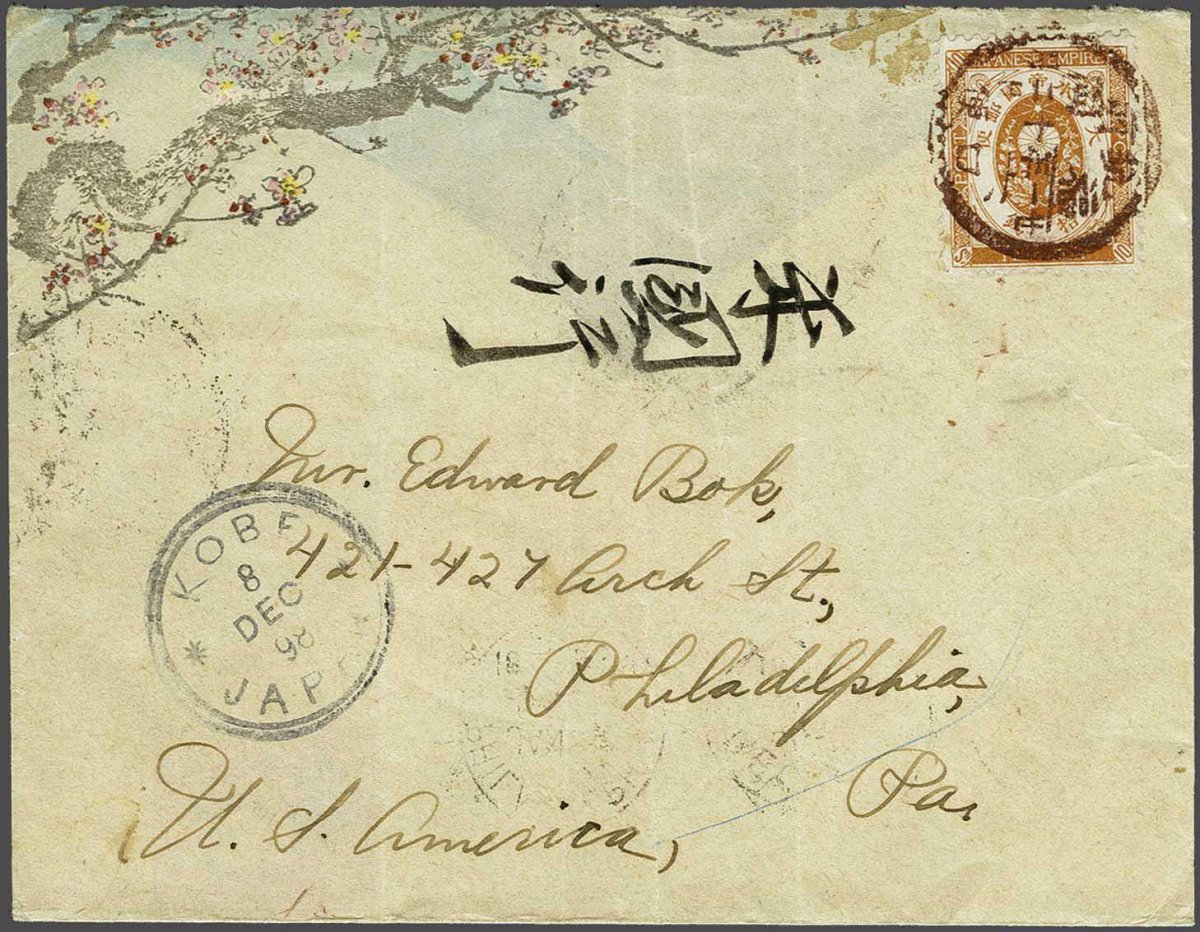 JAPANESE EMPIRE
10
米國
Mr. Edward Bok,
421-427 Arch St,
Philadelphia,
Pa,
U. S. America,
KOBE
8
DEC
98
JAPAN